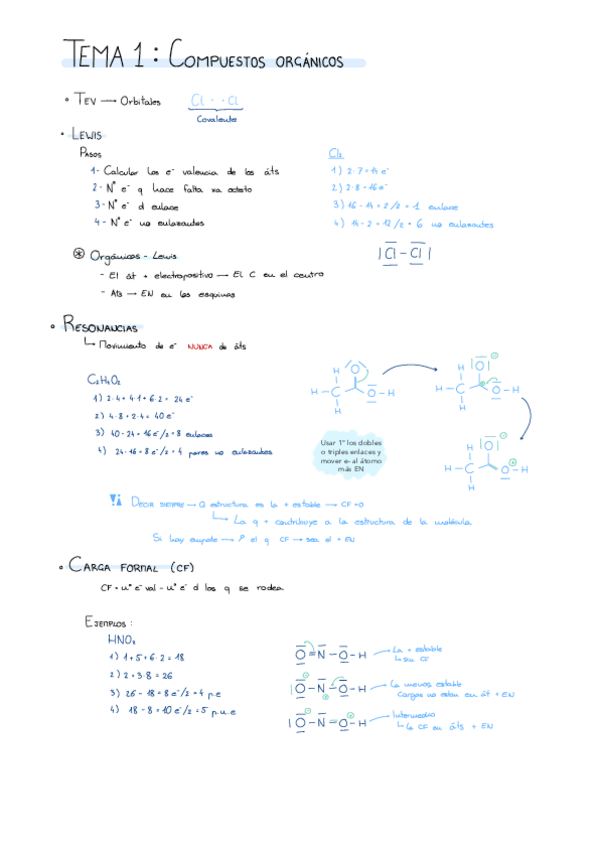 TEMA 1: COMPUESTOS ORGÁNICOS
• TEV → Orbitales Cl · · Cl
Covalente
• LEWIS
PASOS
1- Calcular los e⁻ valencia de los áts
2- Nº e⁻ q hace falta xa octeto
3- Nº e⁻ d enlace
4- Nº e⁻ no enlazantes
Cl₂
1) 2·7=14 e⁻
2) 2·8=16e⁻
3) 16-14=2/2=1 enlace
4) 14-2=12/2=6 no enlazantes
|Cl-Cl|
⊛ Orgánicos - Lewis
- El át + electropositivo → El C en el centro
- Ats → EN en las esquinas
• RESONANCIAS
↳ Movimiento de e⁻ NUNCA de áts
C₂H₄O₂
1) 2·4+4·1+6·2= 24e⁻
2) 4·8+2·4= 40e⁻
3) 40-24=16e⁻/2=8 enlaces
4) 24-16=8e⁻/2=4 pares no enlazantes
H O
H-C O-H
H
H |O| ⊖
H-C O-H
H
H |O| ⊖
H-C O-H ⊕
H
Usar 1º los dobles
o triples enlaces y
mover e- al átomo
más EN
DECIR SIEMPRE → Q estructura es la + estable → CF=0
↳ La q + contribuye a la estructura de la molécula
Si hay empate → P el q CF → sea el + EN
• CARGA FORMAL (CF)
CF = nº e⁻ val - nº e⁻ d los q se rodea
EJEMPLOS:
HNO₂
1) 1+5+6·2=18
2) 2+3·8=26
3) 26-18=8e⁻/2=4 p.e
4) 18-8=10e⁻/2=5 p.n.e
O=N-O-H
La + estable
↳ sin CF
|O-N-O-H
La menos estable
Cargas no estan en át + EN
|O-N=O-H
Intermedio
↳ la CF en áts + EN